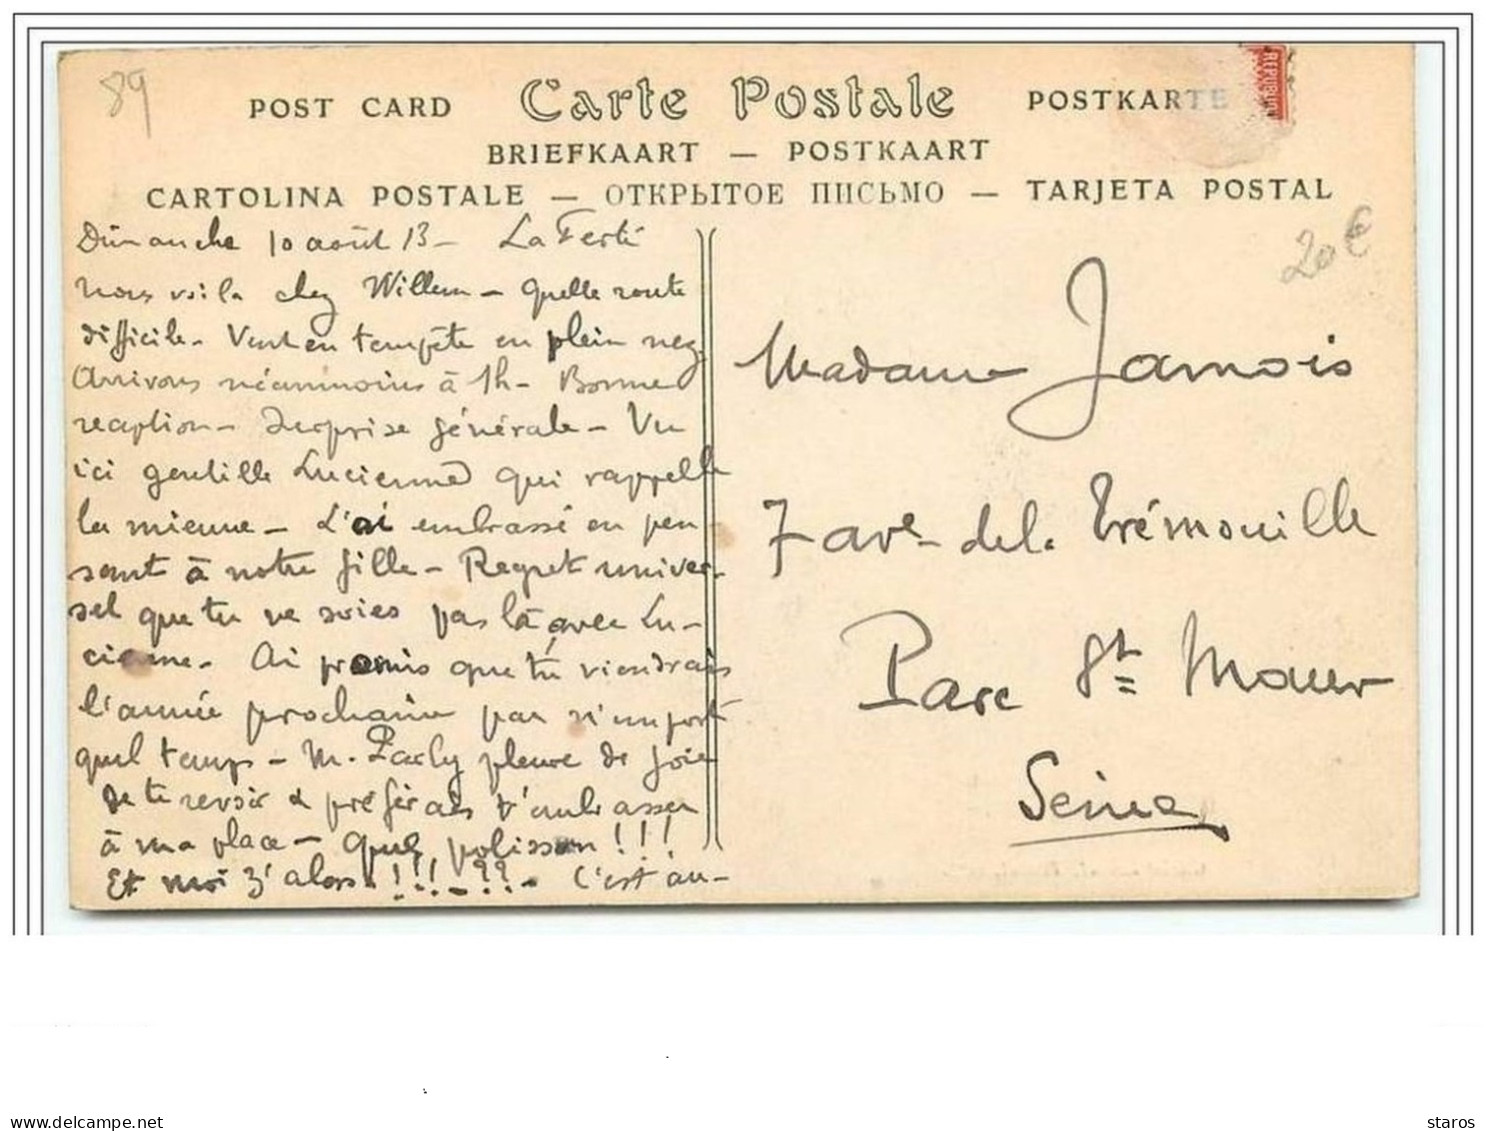 89
POST CARD Carte Postale POSTKARTE
REPUBLIQ
BRIEFKAART — POSTKAART
CARTOLINA POSTALE — ОТКРЫТОЕ ПИСЬМО — TARJETA POSTAL
20€
Dimanche 10 août 13 - La Ferté
nous voila chez Willem - Quelle route
difficile - Vent en tempête en plein nez
Arrivons néanmoins à 1h - Bonne
reception - Surprise générale - Vu
ici gentille Lucienne qui rappelle
la mienne - L'ai embrassé en pen-
sant à notre fille - Regret univer-
sel que tu ne soies pas là avec Lu-
cienne - Ai promis que tu viendrais
l'année prochaine par n'import
quel temps - M. Parly pleure de joie
de te revoir & préférais t'embrasser
à ma place - Quel polisson !!!
Et moi z'alors !!! - ?? - C'est au-
Madame Jamois
7 ave de la Trémouille
Parc St Maur
Seine
delcampe.net
staros